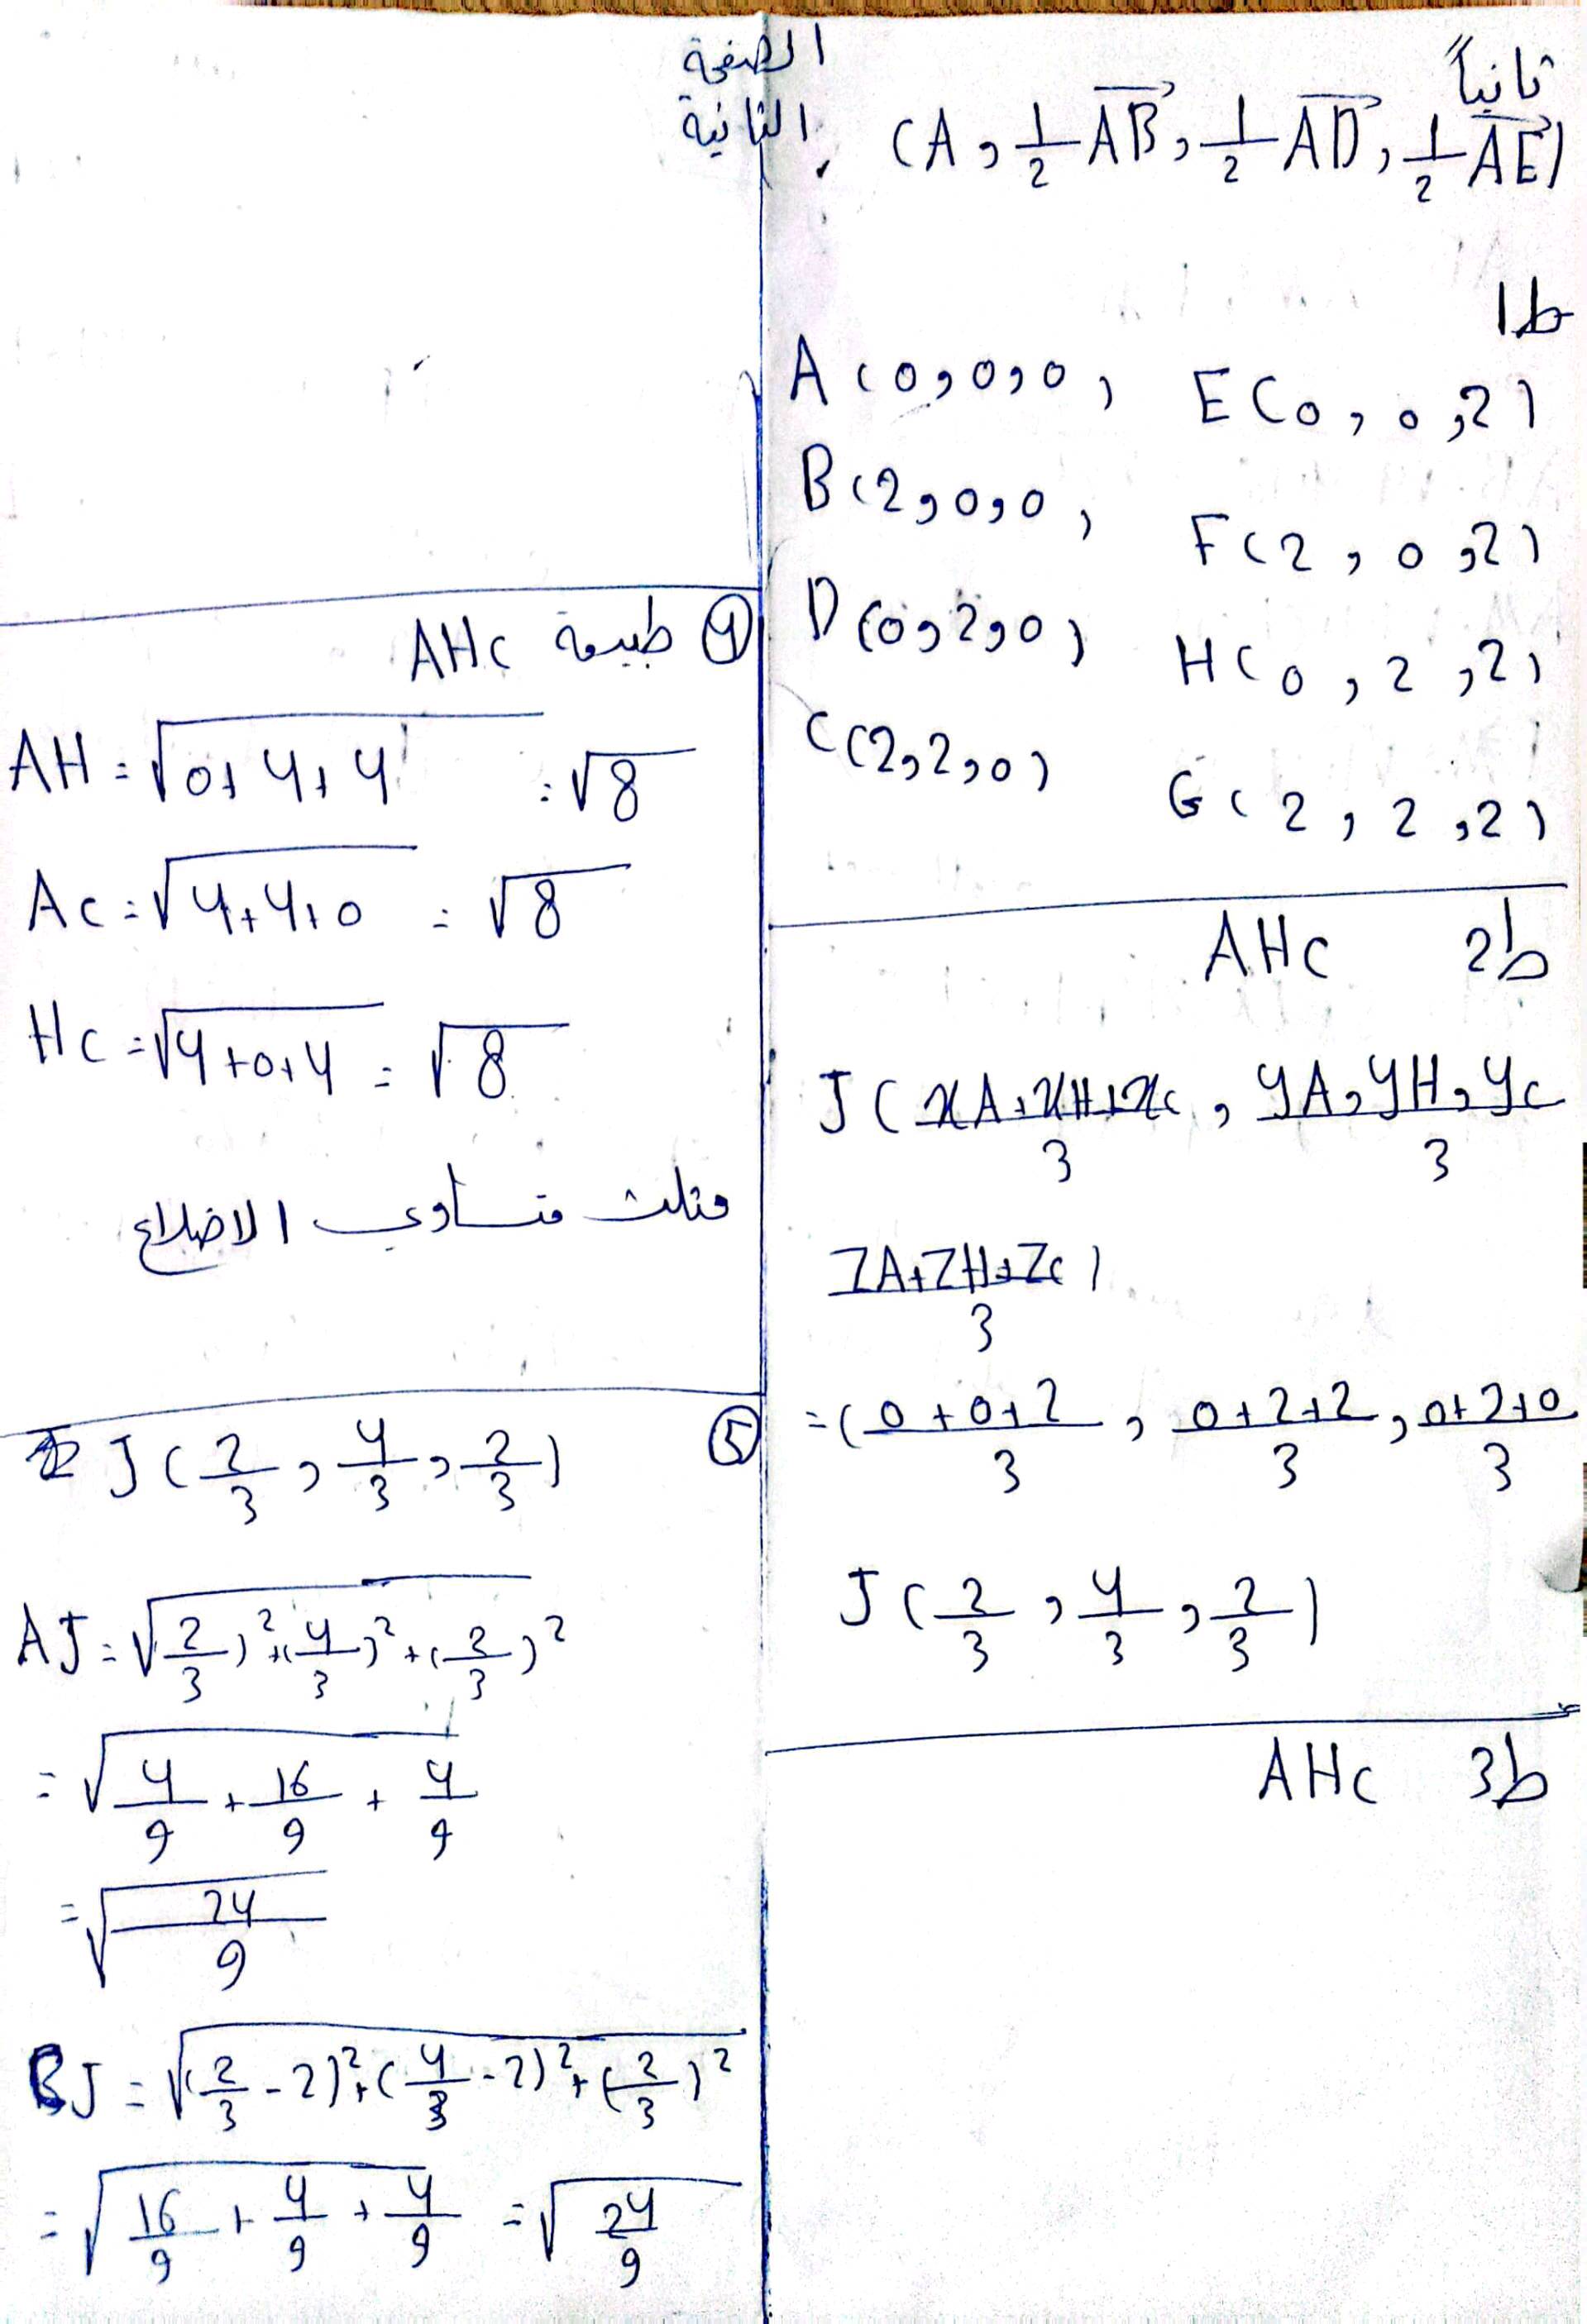 الصفحة
الثانية
ثانياً
(A, 1/2 AB, 1/2 AD, 1/2 AE)
ط1
A(0,0,0) E(0,0,2)
B(2,0,0) F(2,0,2)
D(0,2,0) H(0,2,2)
C(2,2,0) G(2,2,2)
ط2 AHC
J(xA+xH+xc/3, yA,yH,yc/3
ZA+ZH+Zc/3)
=(0+0+2/3, 0+2+2/3, 0+2+0/3
J(2/3, 4/3, 2/3)
ط3 AHC
④ طبيعة AHC
AH = √0+4+4 = √8
AC = √4+4+0 = √8
HC = √4+0+4 = √8
مثلث متساوي الاضلاع
⑤ J(2/3, 4/3, 2/3)
AJ = √2/3)²+(4/3)²+(2/3)²
= √4/9 + 16/9 + 4/9
= √24/9
CJ = √(2/3 - 2)²+(4/3 - 2)²+(2/3)²
= √16/9 + 4/9 + 4/9 = √24/9